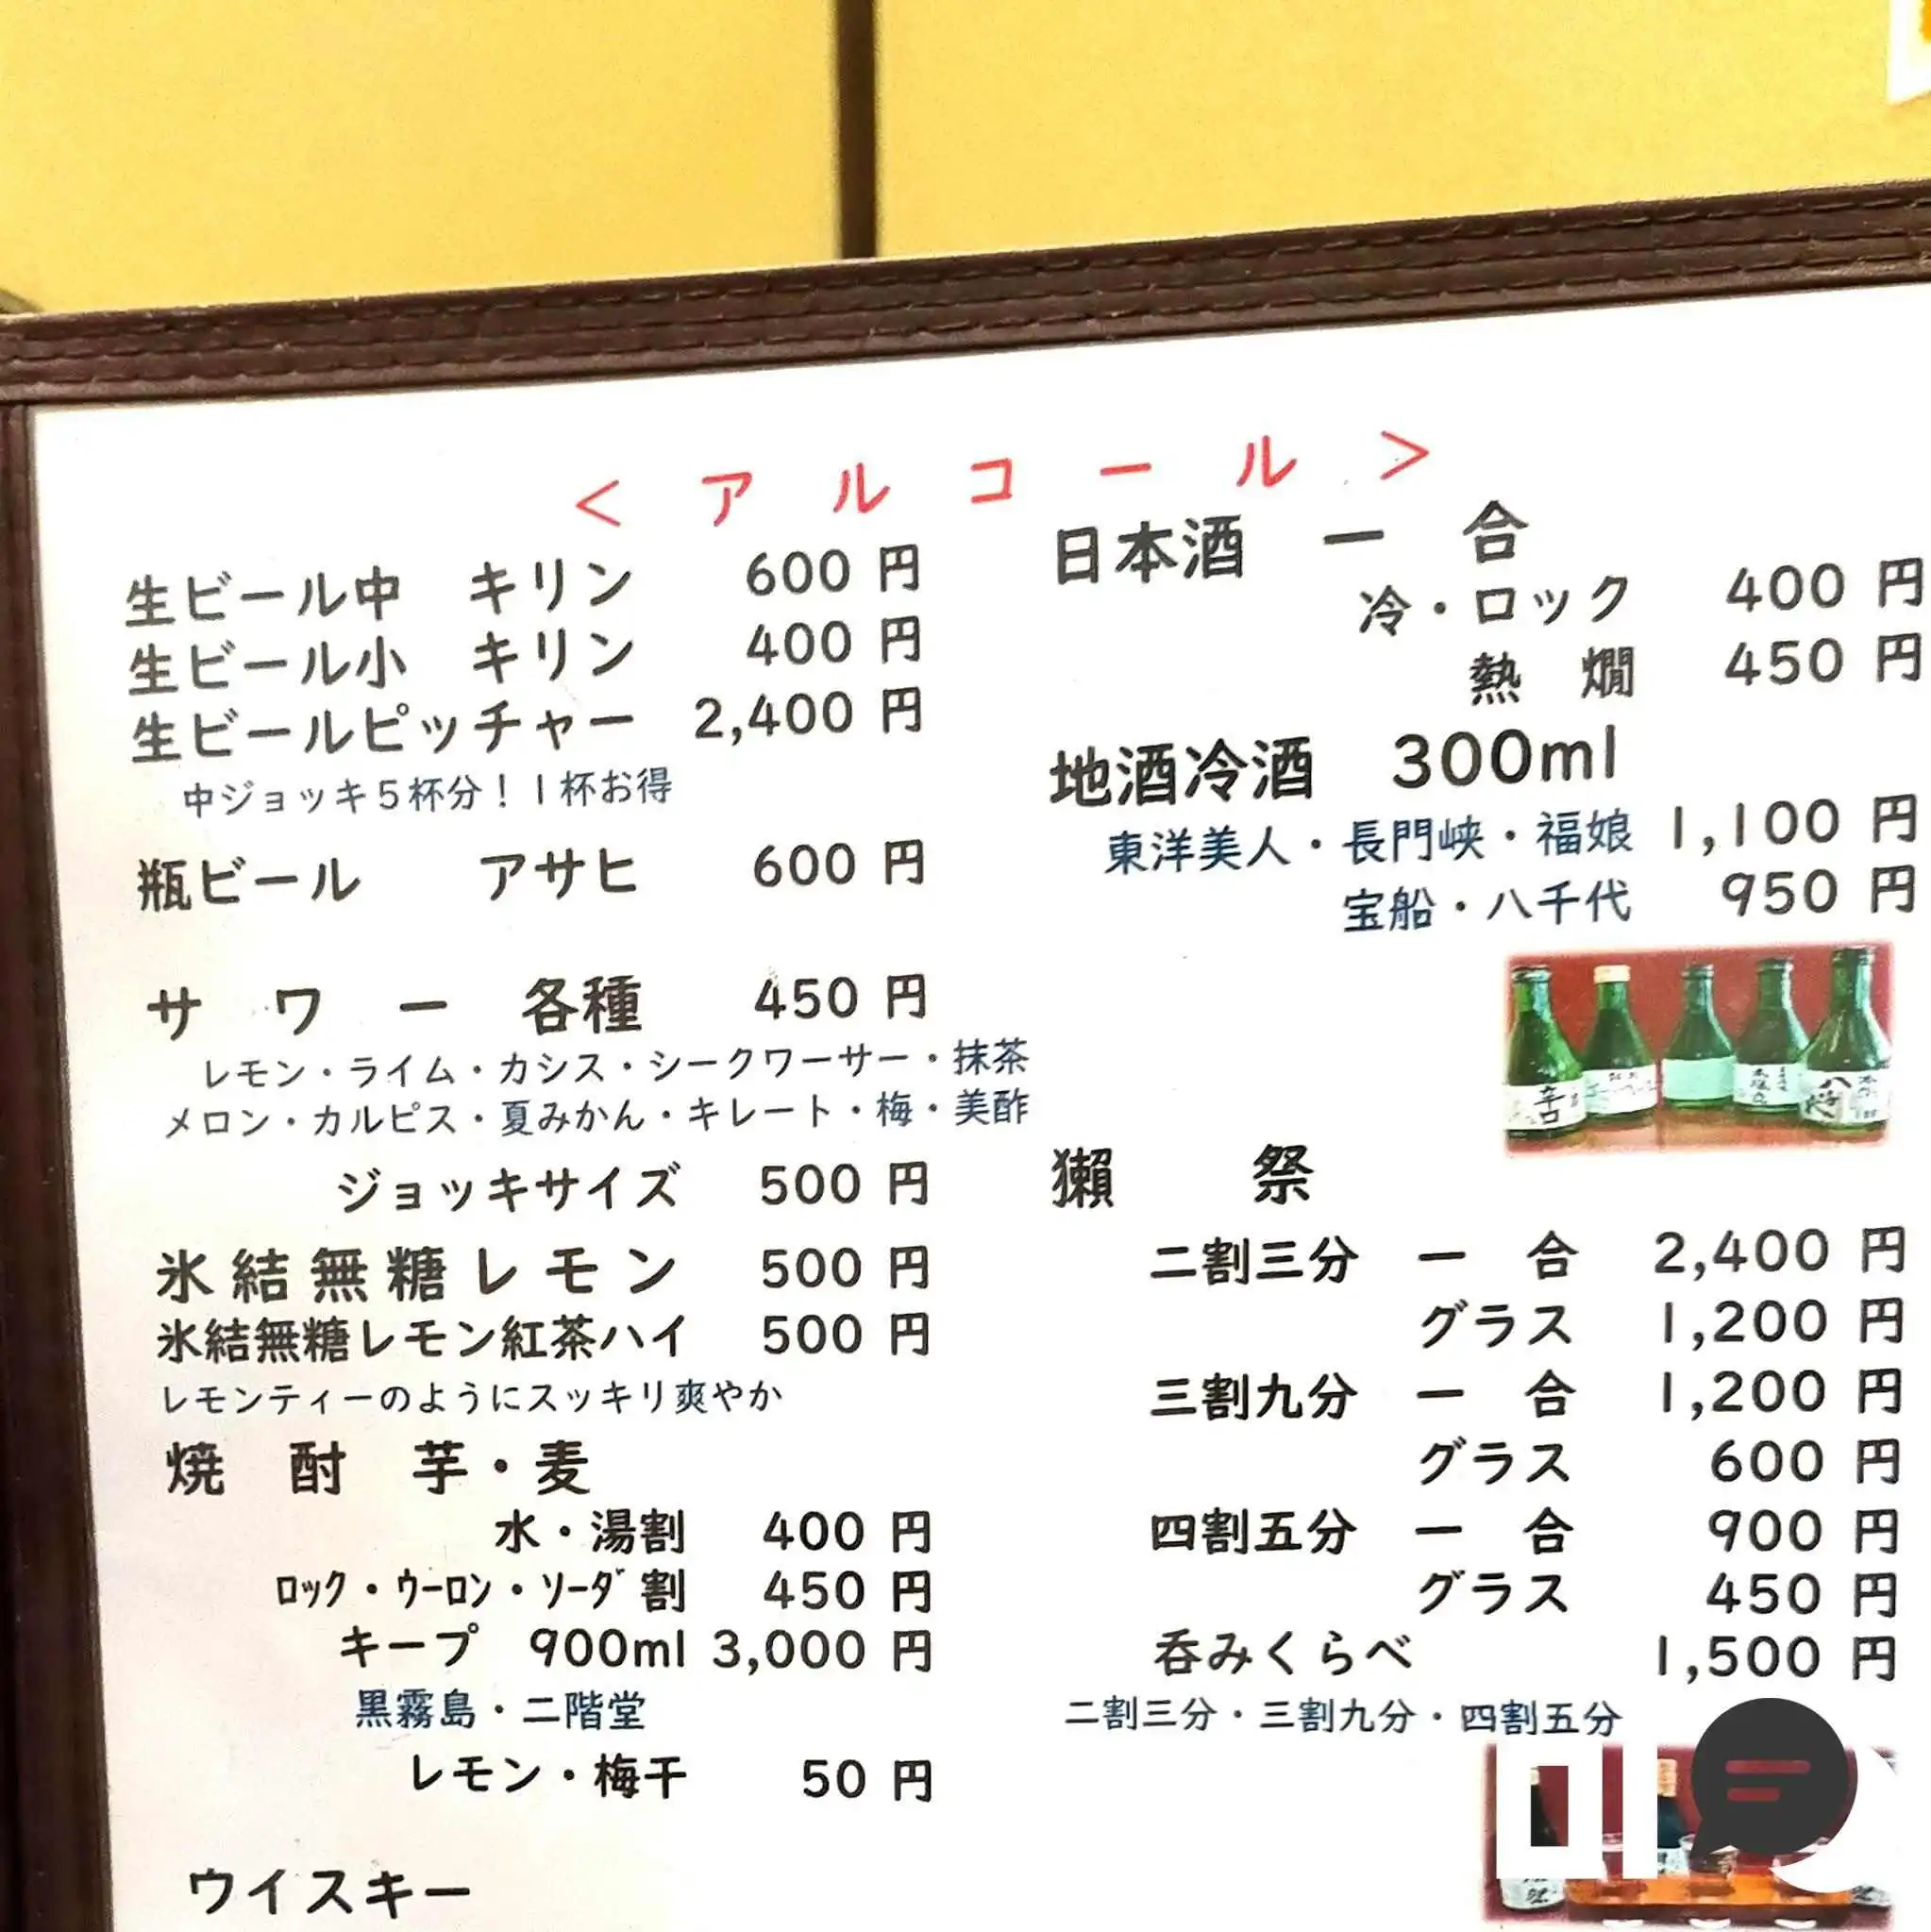 ＜アルコール＞
生ビール中　キリン　600 円
生ビール小　キリン　400 円
生ビールピッチャー　2,400 円
中ジョッキ5杯分！1杯お得
瓶ビール　アサヒ　600 円
サワー　各種　450 円
レモン・ライム・カシス・シークワーサー・抹茶
メロン・カルピス・夏みかん・キレート・梅・美酢
ジョッキサイズ　500 円
氷結無糖レモン　500 円
氷結無糖レモン紅茶ハイ　500 円
レモンティーのようにスッキリ爽やか
焼酎　芋・麦
水・湯割　400 円
ﾛｯｸ・ｳｰﾛﾝ・ｿｰﾀﾞ割　450 円
キープ　900ml　3,000 円
黒霧島・二階堂
レモン・梅干　50 円
ウイスキー
日本酒　一合
冷・ロック　400 円
熱燗　450 円
地酒冷酒　300ml
東洋美人・長門峡・福娘　1,100 円
宝船・八千代　950 円
辛口
獺祭
二割三分　一合　2,400 円
グラス　1,200 円
三割九分　一合　1,200 円
グラス　600 円
四割五分　一合　900 円
グラス　450 円
呑みくらべ　1,500 円
二割三分・三割九分・四割五分